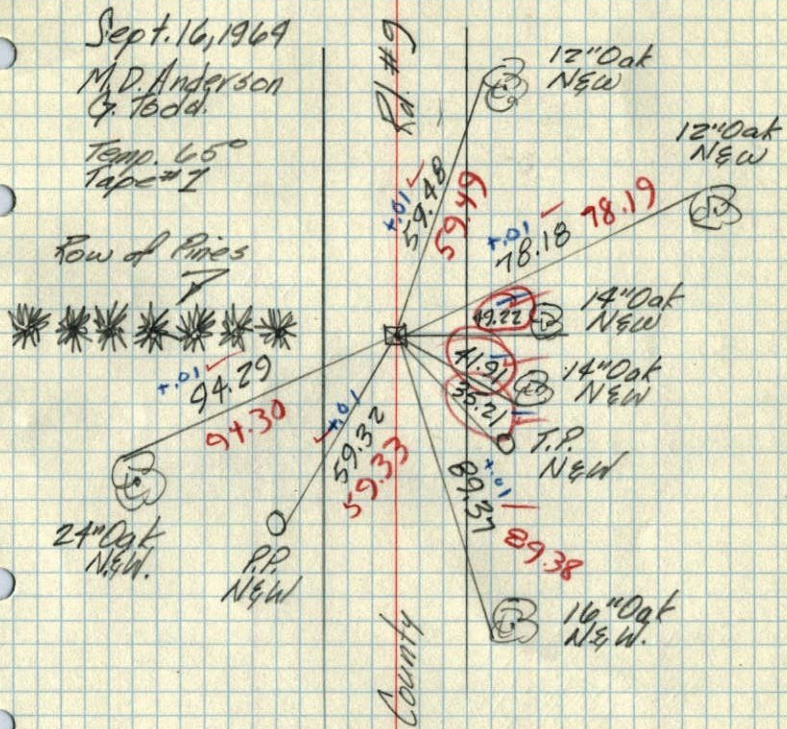 Sept. 16, 1964
M.D. Anderson
G. Todd.
Temp. 65°
Tape #1
Row of Pines
Rd. #9
12" Oak
N&W
12" Oak
N&W
+.01
59.48
59.49
+.01
78.18
78.19
49.22
14" Oak
N&W
41.91
14" Oak
N&W
35.21
T.P.
N&W
+.01
94.29
94.30
+.01
59.32
59.33
+.01
89.37
89.38
24" Oak
N&W.
P.P.
N&W
16" Oak
N&W.
County